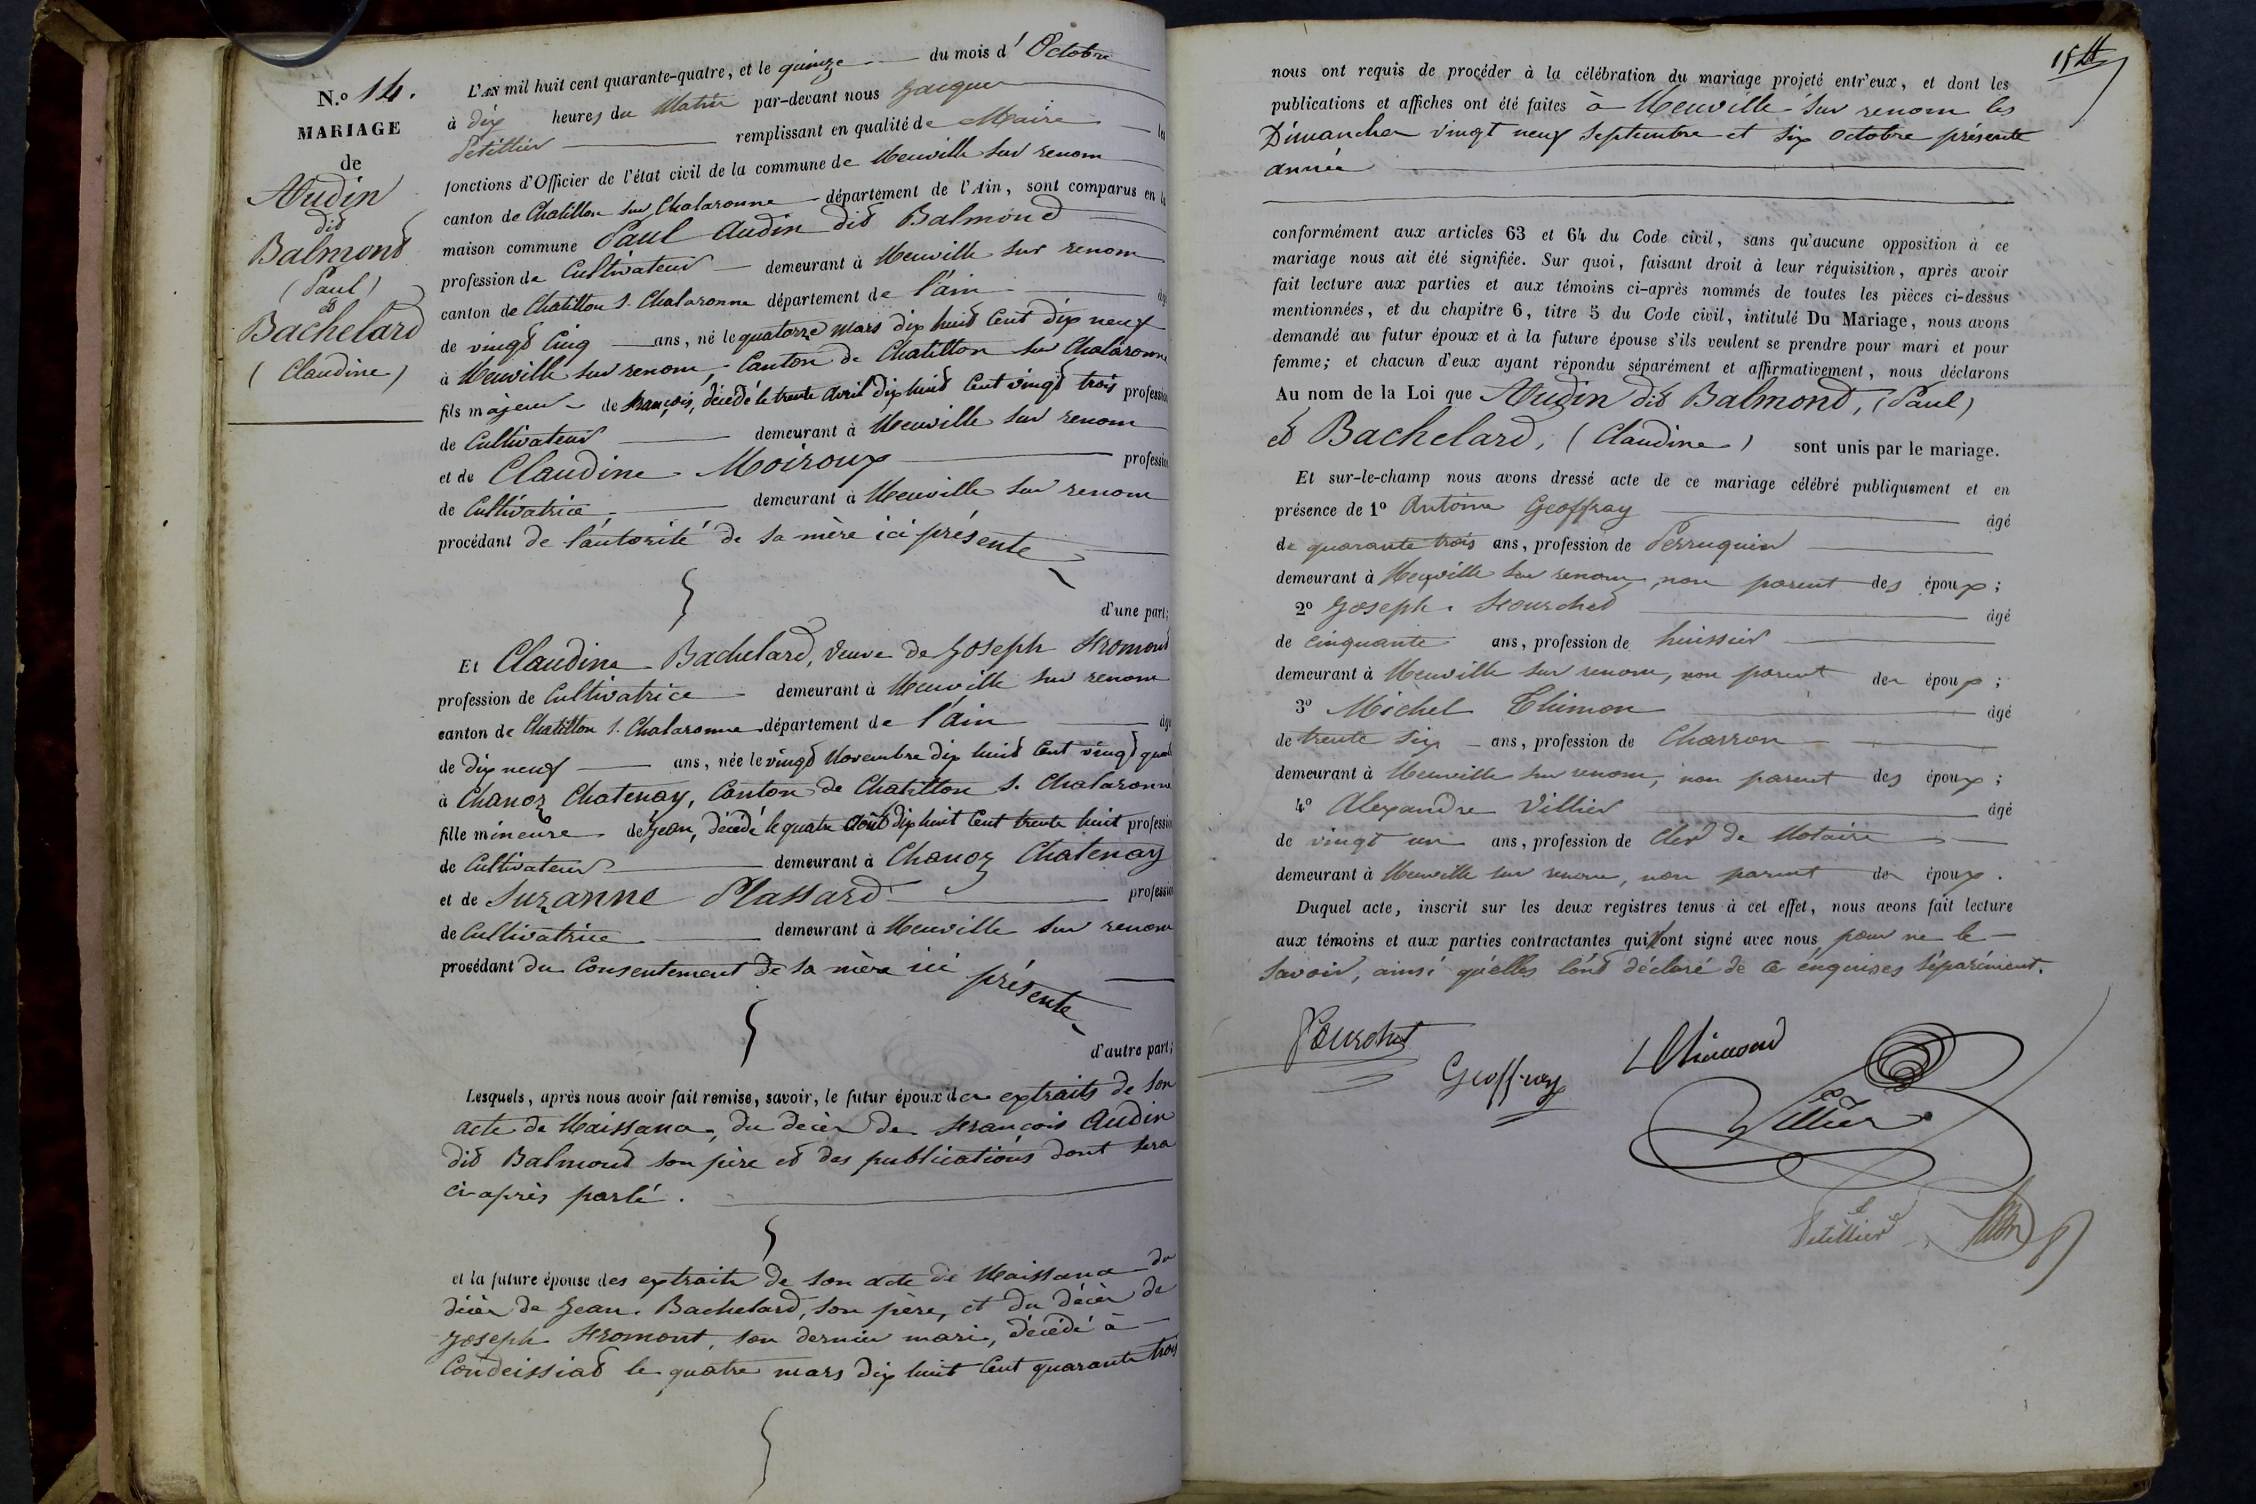 N.º 14.
MARIAGE
de
Audin
dit
Balmont
(Paul)
et
Bachelard
(Claudine)
L'AN mil huit cent quarante-quatre, et le quinze du mois d'Octobre
à dix heures du Matin par-devant nous Jacques
Petillier remplissant en qualité de Maire les
fonctions d'Officier de l'état civil de la commune de Neuville sur renom
canton de Chatillon sur Chalaronne département de l'Ain, sont comparus en la
maison commune Paul Audin dit Balmond
profession de Cultivateur demeurant à Neuville sur renom
canton de Chatillon s. Chalaronne département de l'ain âgé
de vingt cinq ans, né le quatorze mars dix huit Cent dix neuf
à Neuville sur renom, Canton de Chatillon sur Chalaronne
fils majeur de françois, décédé le trente avril dix huit Cent vingt trois profession
de Cultivateur demeurant à Neuville sur renom
et de Claudine Moiroux profession
de Cultivatrice demeurant à Neuville sur renom
procédant de l'autorité de sa mère ici présente
d'une part;
Et Claudine Bachelard, veuve de Joseph Fromont
profession de Cultivatrice demeurant à Neuville sur renom
canton de Chatillon s. Chalaronne département de l'Ain âgée
de dix neuf ans, née le vingt Novembre dix huit Cent vingt quatre
à Chanoz Chatenay, Canton de Chatillon s. Chalaronne
fille mineure de Jean, décédé le quatre août dix huit Cent trente huit profession
de Cultivateur demeurant à Chanoz Chatenay
et de Suzanne Plassard profession
de Cultivatrice demeurant à Neuville sur renom
procédant du Consentement de sa mère ici présente
d'autre part;
Lesquels, après nous avoir fait remise, savoir, le futur époux des extraits de son
acte de Naissance, du décès de françois Audin
dit Balmont son père et des publications dont sera
ci-après parlé.
et la future épouse des extraits de son acte de Naissance du
décès de Jean Bachelard, son père, et du décès de
Joseph Fromont, son dernier mari, décédé à
Condeissiat le quatre mars dix huit Cent quarante trois
15
nous ont requis de procéder à la célébration du mariage projeté entr'eux, et dont les
publications et affiches ont été faites à Neuville sur renom les
Dimanches vingt neuf Septembre et six octobre présente
année
conformément aux articles 63 et 64 du Code civil, sans qu'aucune opposition à ce
mariage nous ait été signifiée. Sur quoi, faisant droit à leur réquisition, après avoir
fait lecture aux parties et aux témoins ci-après nommés de toutes les pièces ci-dessus
mentionnées, et du chapitre 6, titre 5 du Code civil, intitulé Du Mariage, nous avons
demandé au futur époux et à la future épouse s'ils veulent se prendre pour mari et pour
femme; et chacun d'eux ayant répondu séparément et affirmativement, nous déclarons
Au nom de la Loi que Audin dit Balmond, (Paul)
et Bachelard, (Claudine) sont unis par le mariage.
Et sur-le-champ nous avons dressé acte de ce mariage célébré publiquement et en
présence de 1º Antoine Geoffray âgé
de quarante trois ans, profession de Perruquier
demeurant à Neuville sur renom, non parent des époux;
2º Joseph Fourchet âgé
de cinquante ans, profession de huissier
demeurant à Neuville sur renom, non parent des époux;
3º Michel Thimon âgé
de trente six ans, profession de Charron
demeurant à Neuville sur renom, non parent des époux;
4º Alexandre Villier âgé
de vingt un ans, profession de Clerc de Notaire
demeurant à Neuville sur renom, non parent des époux.
Duquel acte, inscrit sur les deux registres tenus à cet effet, nous avons fait lecture
aux témoins et aux parties contractantes qui ont signé avec nous, pour ne le
savoir, ainsi qu'elles l'ont déclaré de ce enquises séparément.
Fourchet
Geoffray
Villier
Petillier